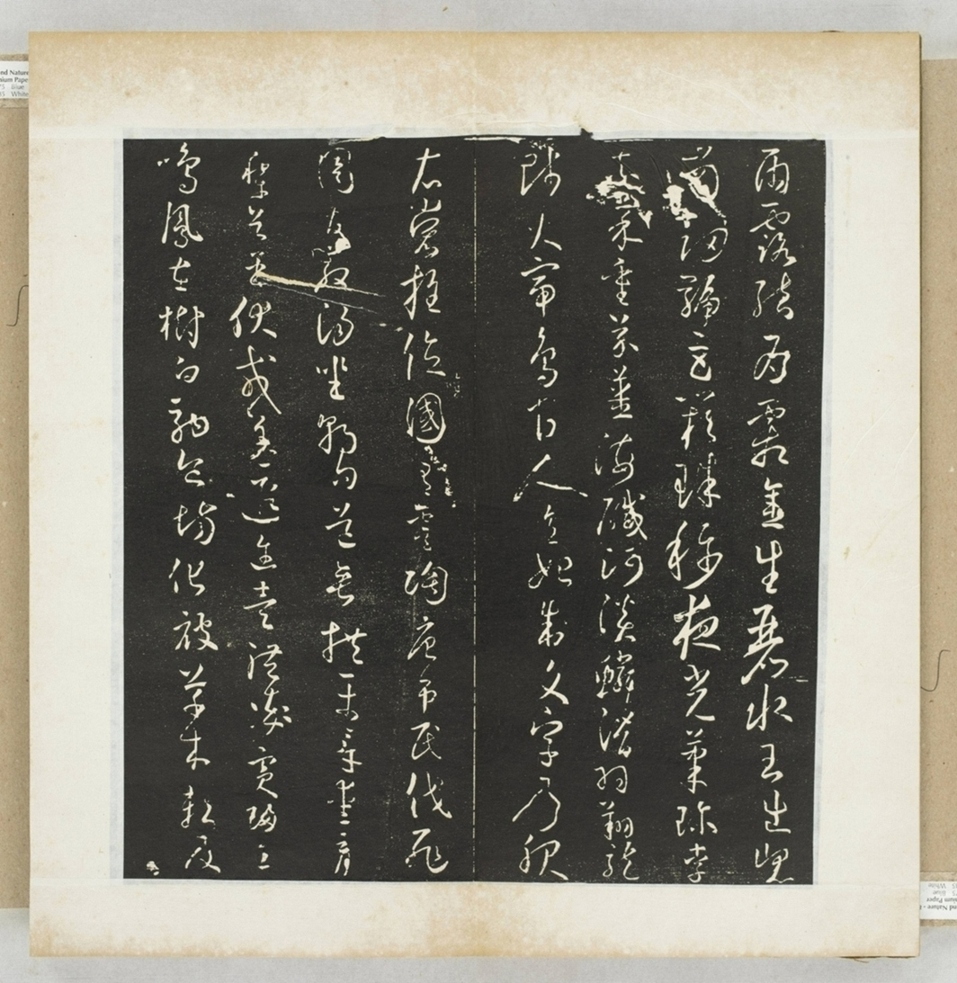 雨露結為霜金生麗水玉出崐
岡劍號巨闕珠稱夜光菓珍李
柰菜重芥薑海鹹河淡鱗潛羽翔龍
師火帝鳥官人皇始制文字乃服
衣裳推位國有虞陶唐弔民伐罪
周發殷湯坐朝問道垂拱平章愛育
黎首臣伏戎羌遐邇壹體率賓歸王
鳴鳳在樹白駒食場化被草木賴及